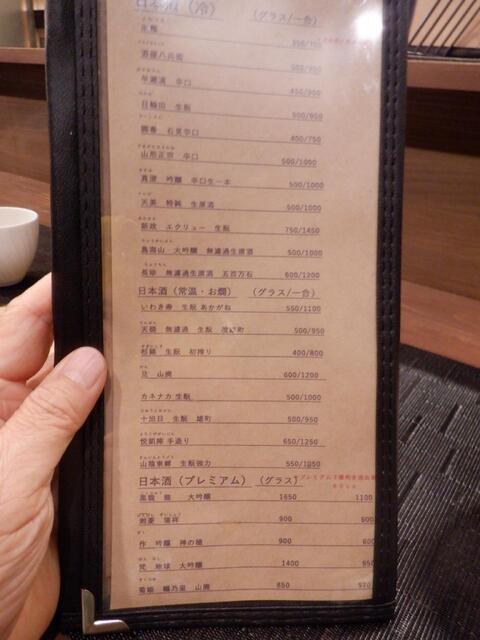 日本酒（冷） （グラス/一合）
酒屋八兵衛
早瀬浦 辛口 450/950
日輪田 生酛 500/950
開春 石見辛口 400/750
山形正宗 辛口 500/1000
真澄 吟醸 辛口生一本 500/1000
天美 特純 生原酒 500/1000
新政 エクリュー 生酛 750/1450
鳥海山 大吟醸 無濾過生原酒 500/1000
長珍 無濾過生原酒 五百万石 600/1200
日本酒（常温・お燗） （グラス/一合）
いわき寿 生酛 あかがね 550/1100
天穏 無濾過 生酛 改良町 500/950
杉錦 生酛 初搾り 400/800
旦 山廃 600/1200
カネナカ 生酛 500/1000
十旭日 生酛 雄町 500/950
悦凱陣 手造り 650/1250
山陰東郷 生酛強力 550/1050
日本酒（プレミアム） （グラス）
黒龍 龍 大吟醸 1650 1100
剣菱 瑞祥 900 600
作 吟醸 神の穂 900 600
梵 地球 大吟醸 1400 950
菊姫 鶴乃里 山廃 850 570